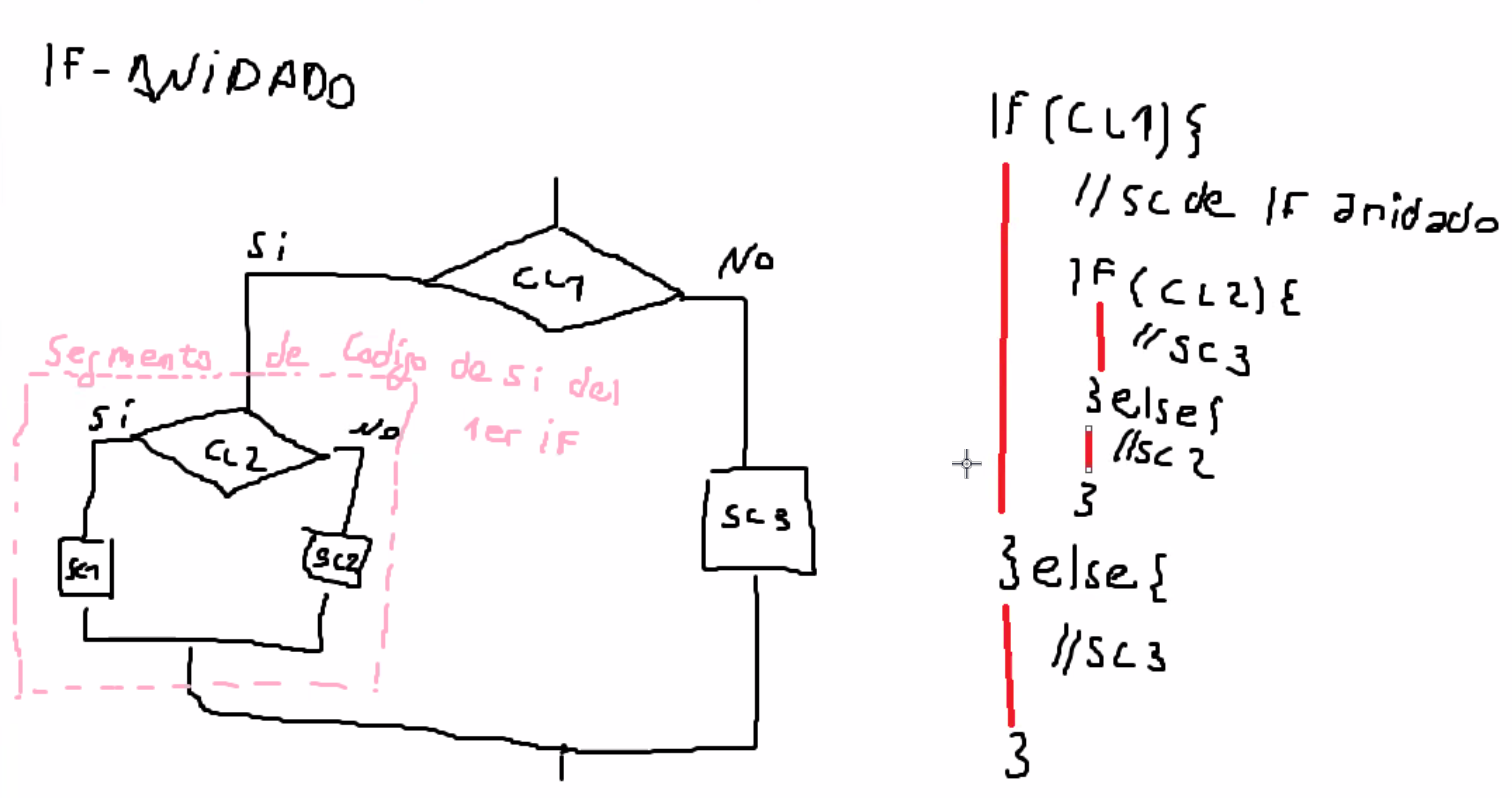 IF-ANIDADO
Si
CL1
No
Segmento de Codigo de si del
1er iF
Si
CL2
No
SC1
SC2
SC3
If (CL1) {
//SC de IF anidado
IF (CL2) {
//SC3
}else{
//SC2
}
}else{
//SC3
}